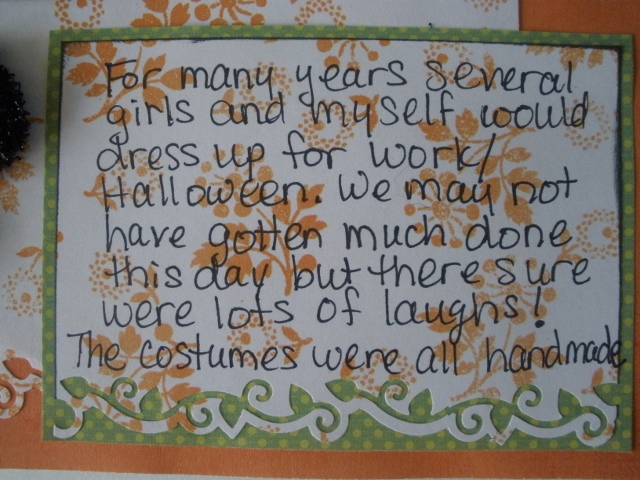 For many years several
girls and myself would
dress up for work/
Halloween. We may not
have gotten much done
this day but there sure
were lots of laughs!
The costumes were all handmade